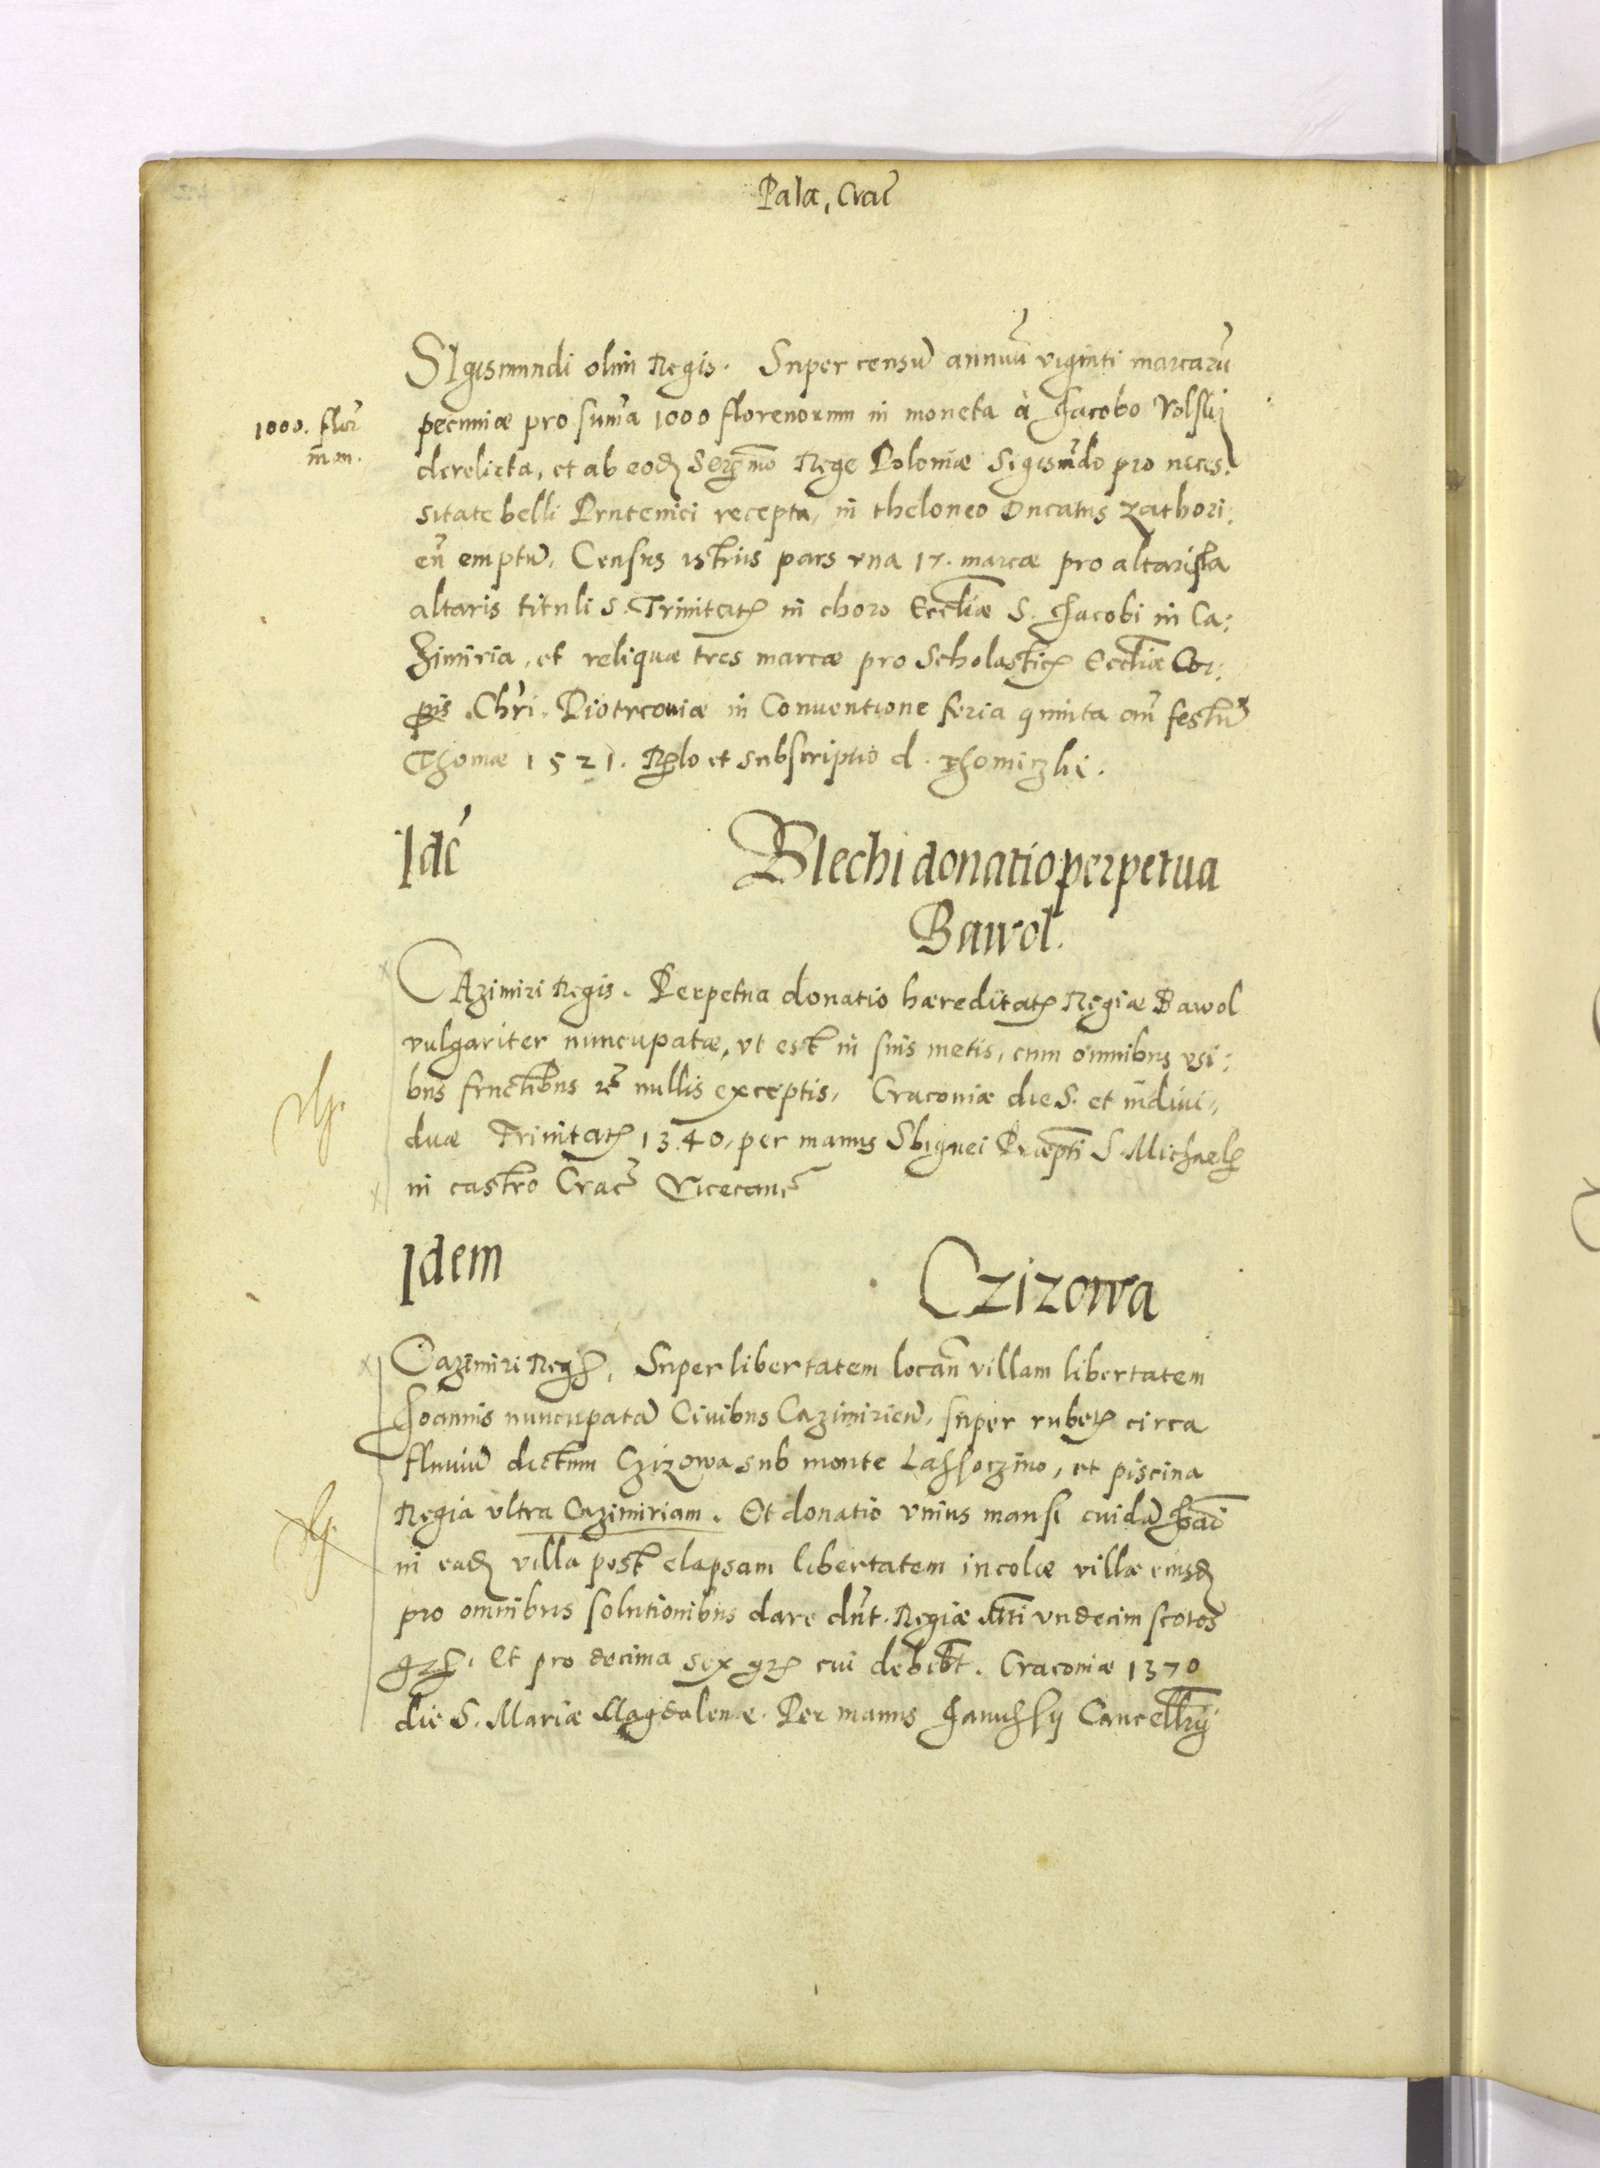 Pala, Crac̃
SIgismundi olim Regis. Super censũ annuũ viginti marcarũ
pecuniæ pro sum̃a 1000 florenorum in moneta à Jacobo Volskij
1000. flor̃
m̃ on.
derelicta, et ab eodꝫ Serẽmo Rege Poloniæ Sigismũdo pro neces:
sitate belli Prutenici recepta, in theloneo Ducatus Zathori:
eñ emptũ. Census istius pars vna 17. marcæ pro altarista
altaris tituli S. Trinitatꝭ in choro Eccl̃iæ S. Jacobi in Ca:
zimiria, et reliquæ tres marcæ pro Scholasticꝭ Eccl̃iæ Cor:
ꝑis Chr̃i. Piotrcouiæ in Conuentione feria quinta añ festũ
Thomæ 1521. Rẽlo et subscriptio d. Thomiczki.
Idẽ
Blechi donatio perpetua
Bawol.
CAzimiri Regis. Perpetua donatio hæreditatꝭ Regiæ Bawol
vulgariter nuncupatæ, vt est in suis metis, cum omnibus vsi:
bus fructibus &c nullis exceptis. Cracouiæ die S. et indiui:
duæ Trinitatꝭ 1340, per manus Sbignei Præpti S. Michaelꝭ
in castro Crac̃ Vicecanc̃
Idem
Czizowa
Cazimiri Regꝭ. Super libertatem locañ villam libertatem
Joannis nuncupatã Ciuibus Cazimirieñ, super rubetꝭ circa
fluuiũ dictum Czizowa sub monte Lassoczino, et piscina
Regia vltra Cazimiriam. Et donatio vnius mansi cuidã
in eadꝫ villa post elapsam libertatem incolæ villæ eiusdꝫ
pro omnibus solutionibus dare dñt. Regiæ Mtti vndecim scotos
grꝭ. Et pro decima sex grꝭ cui debebt. Cracouiæ 1370
die S. Mariæ Magdalenæ. Per manus Janussij Cancellrij